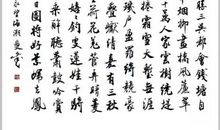 勝三吳都會錢塘自
煙柳畫橋風簾翠
十萬人家雲樹繞堤
捲霜雪天塹無涯
璣戶盈羅綺競豪
疊巘清嘉有三秋
荷花羌管弄晴菱
嬉釣叟蓮娃千騎
乘醉聽簫鼓吟賞
日圖將好景歸去鳳
永望海潮